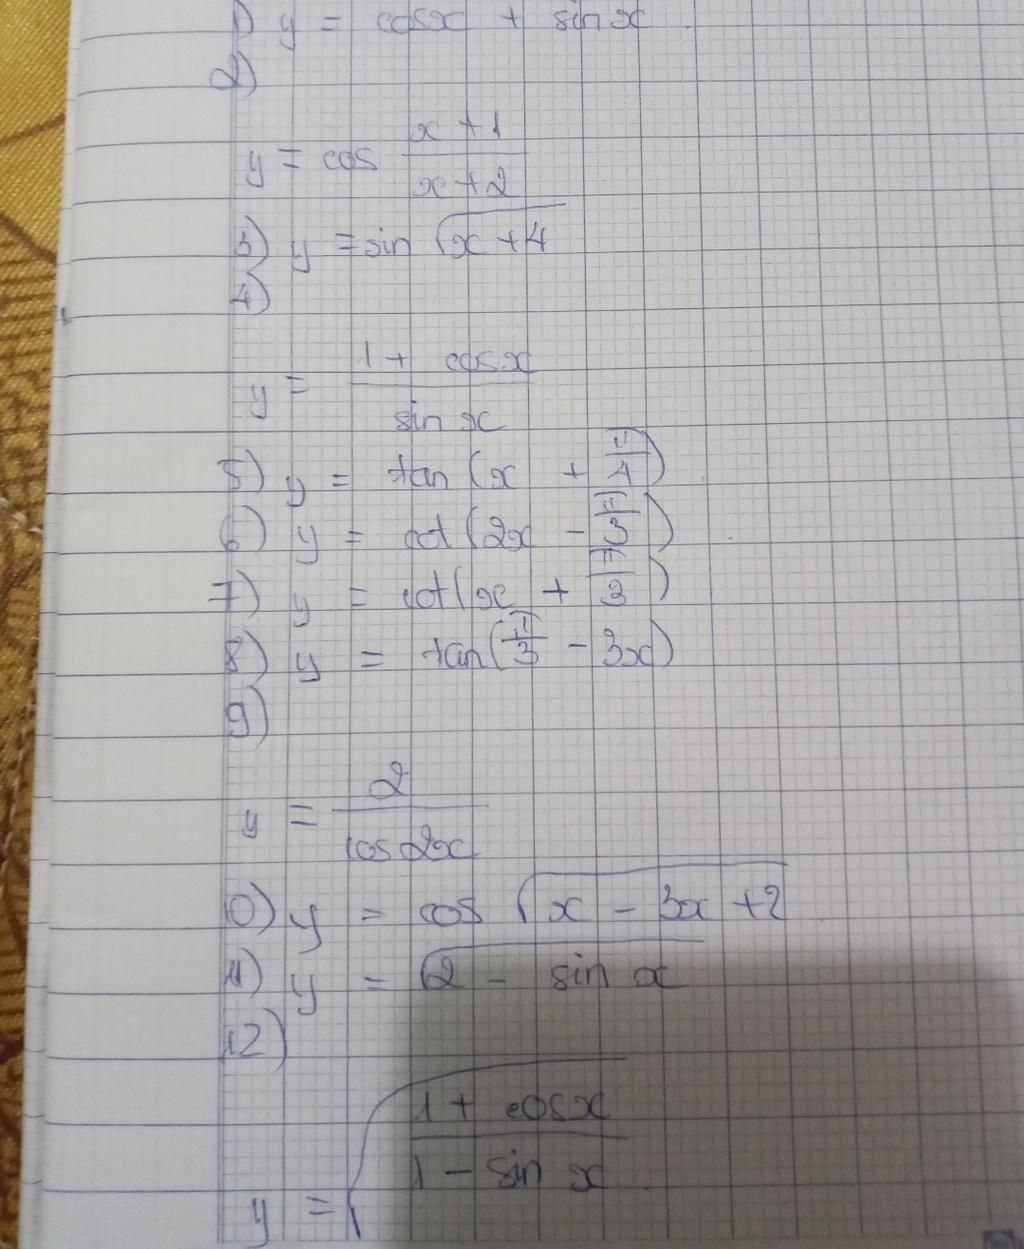 1) y = cosx + sinx
2)
y = cos \frac{x + 1}{x + 2}
3) y = sin √(x + 4)
4)
y = \frac{1 + cosx}{sin x}
5) y = tan (x + \frac{π}{4})
6) y = cot (2x - \frac{π}{3})
7) y = cot (x + \frac{π}{3})
8) y = tan (\frac{π}{3} - 3x)
9)
y = \frac{2}{cos 2x}
10) y = cos √(x - 3x + 2)
11) y = √(2 - sin x)
12)
y = √(\frac{1 + cosx}{1 - sin x})